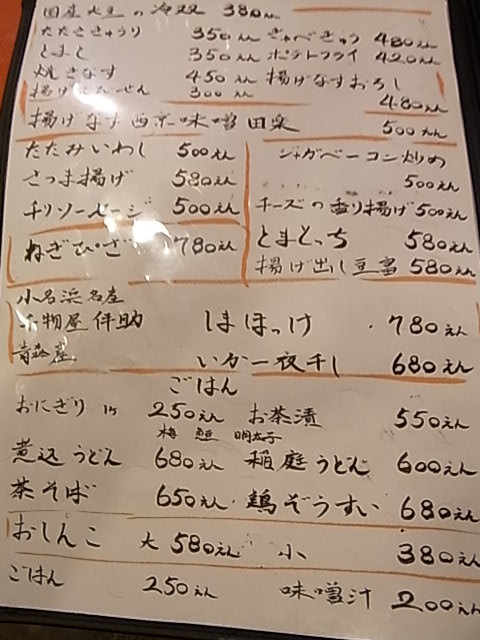 国産大豆の冷奴 380えん
たたききゅうり 350えん きゃべきゅう 480えん
とまと 350えん ポテトフライ 420えん
焼きなす 450えん 揚げなすおろし
300えん 480えん
揚げなす西京味噌田楽 500えん
たたみいわし 500えん ジャガベーコン炒め
さつま揚げ 580えん 500えん
チリソーセージ 500えん チーズの香り揚げ 500えん
ねぎぴざ 780えん とまとっち 580えん
揚げ出し豆富 580えん
小名浜名産
干物屋伴助 しまほっけ 780えん
青森産 いか一夜干し 680えん
ごはん
おにぎり 250えん お茶漬 550えん
梅 鮭 明太子
煮込うどん 680えん 稲庭うどん 600えん
茶そば 650えん 鶏ぞうすい 680えん
おしんこ 大 580えん 小 380えん
ごはん 250えん 味噌汁 200えん